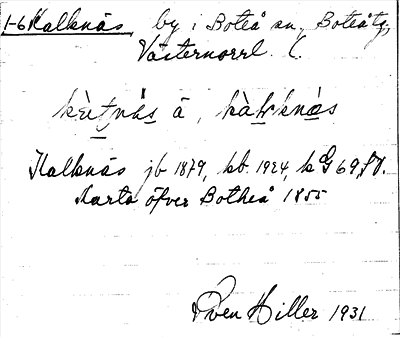 1-6 Kalknäs by i Boteå sn, Boteå tg,
Västernorrl. l.
å,
Kalknäs jb 1879, kb. 1924, k G 69, SV.
Karta öfver Botheå 1855
Sven Hiller 1931